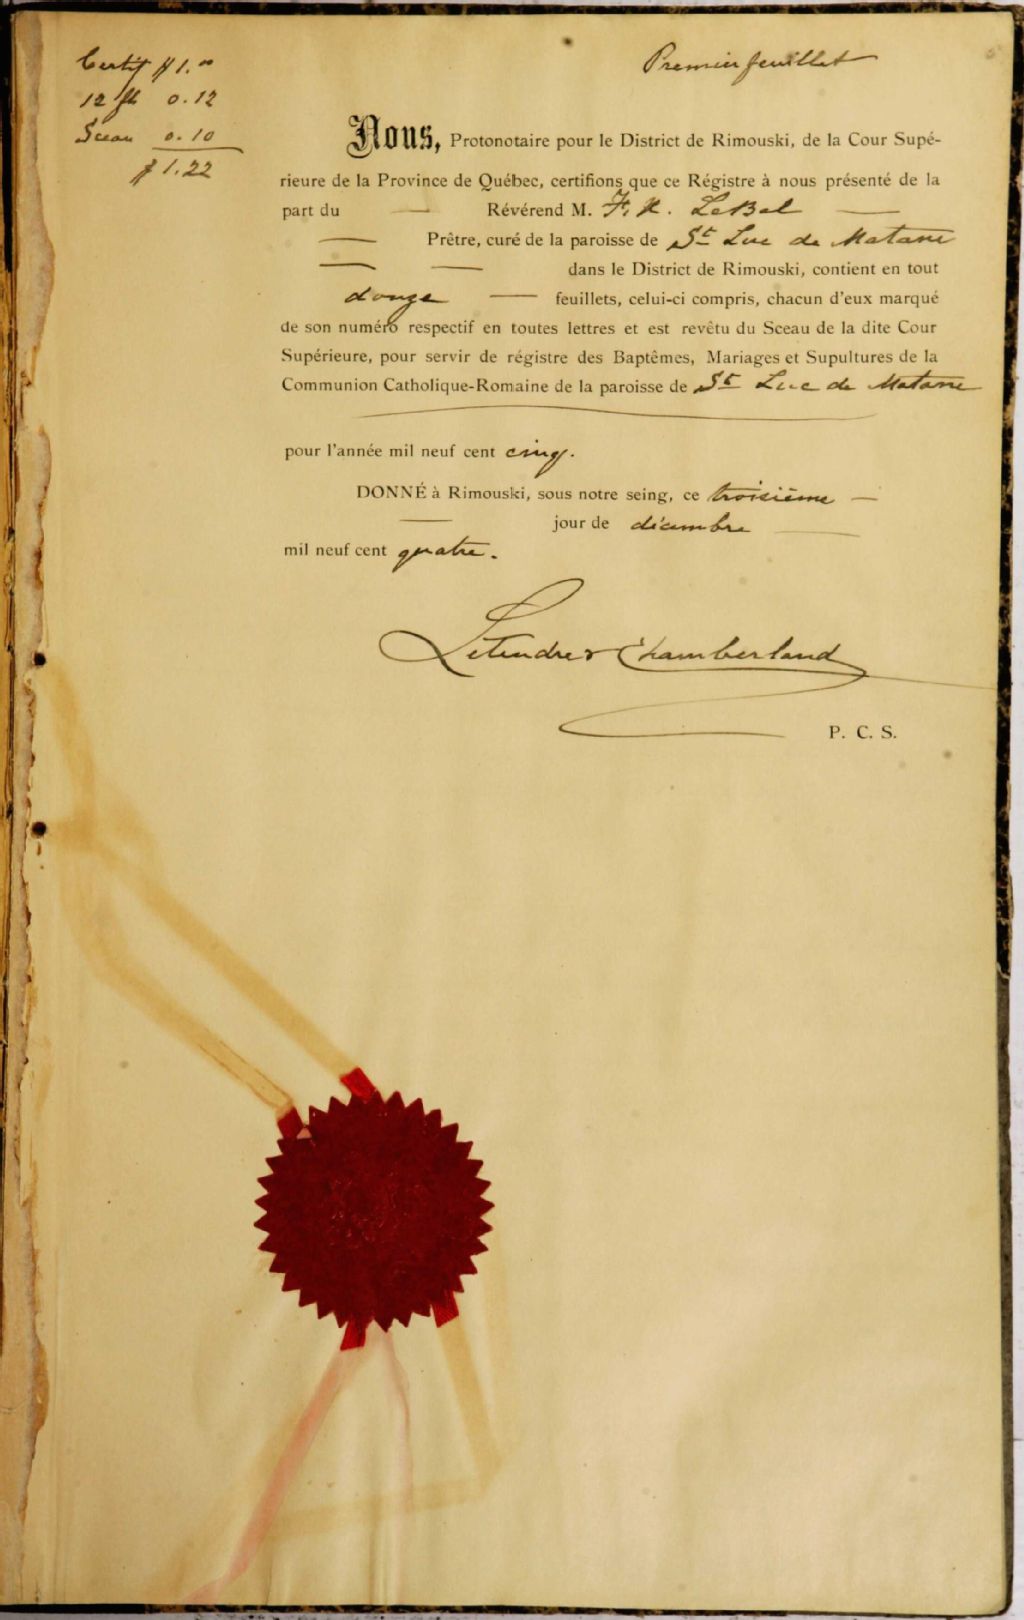 Certif $1.00
12 flt 0.12
Sceau 0.10
$1.22
Premier feuillet
Nous, Protonotaire pour le District de Rimouski, de la Cour Supé-
rieure de la Province de Québec, certifions que ce Régistre à nous présenté de la
part du — Révérend M. F. X. LeBel —
— Prêtre, curé de la paroisse de St Luc de Matane
— — dans le District de Rimouski, contient en tout
douze — feuillets, celui-ci compris, chacun d'eux marqué
de son numéro respectif en toutes lettres et est revêtu du Sceau de la dite Cour
Supérieure, pour servir de régistre des Baptêmes, Mariages et Supultures de la
Communion Catholique-Romaine de la paroisse de St Luc de Matane
pour l'année mil neuf cent cinq.
DONNÉ à Rimouski, sous notre seing, ce troisième —
— jour de décembre —
mil neuf cent quatre.
Letendre & Chamberland
P. C. S.